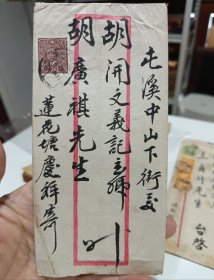 屯溪中山下街交
胡開文義記主號
胡廣祺先生
蓮花塘慶祥寄
先生 台啓